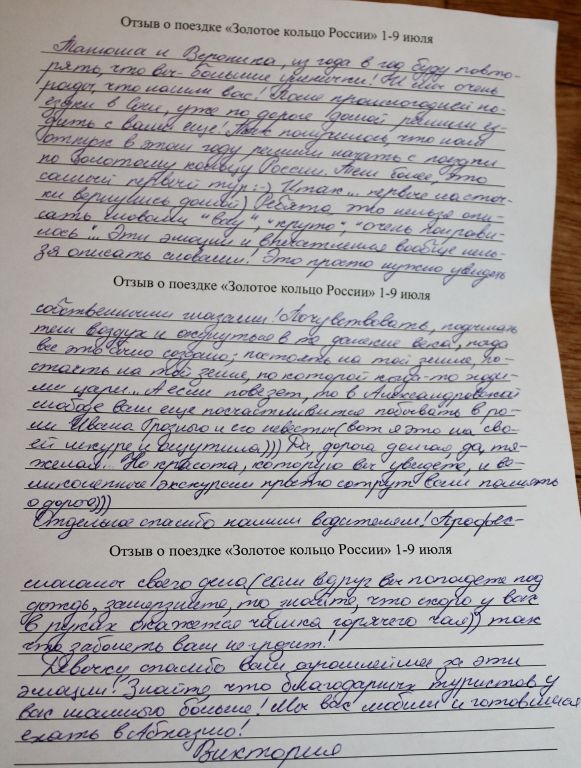 Отзыв о поездке «Золотое кольцо России» 1-9 июля
Танюша и Вероника, из года в год буду повто-
рять, что вы- большие умнички! И мы очень
рады, что нашли вас! После прошлогодней по-
ездки в Сочи, уже по дороге домой решили ез-
дить с вами еще! Так получилось, что наш
отпуск в этом году решили начать с поездки
по Золотому кольцу России. Тем более, это
самый первый тур :-) Итак... первые ласточ-
ки вернулись домой) Ребята, это нельзя опи-
сать словами "вау", "круто", "очень понрави-
лось"... Эти эмоции и впечатления вообще нель-
зя описать словами! Это просто нужно увидеть
Отзыв о поездке «Золотое кольцо России» 1-9 июля
собственными глазами! Почувствовать, подышать
тем воздухом и окунуться в те далекие века, когда
все это было создано; постоять на той земле, по-
стоять на той земле, по которой когда-то ходи-
ли цари... А если повезет, то в Александровской
слободе вам еще посчастливится побывать в ро-
ли Ивана Грозного и его невесты (вот я это на сво-
ей шкуре и ощутила))) Да, дорога долгая, да, тя-
желая... Но красота, которую вы увидете, и ве-
ликолепные экскурсии просто сотрут вам память
о дороге)))
Отдельное спасибо нашим водителям! Профес-
Отзыв о поездке «Золотое кольцо России» 1-9 июля
сионалы своего дела (если вдруг вы попадете под
дождь, замерзнете, то знайте, что скоро у вас
в руках окажется чашка горячего чая)) так
что заболеть вам не грозит!
Девочки, спасибо вам огромнейшее за эти
эмоции! Знайте что благодарных туристов у
вас намного больше! Мы вас любим и готовимся
ехать в Абхазию!
Виктория